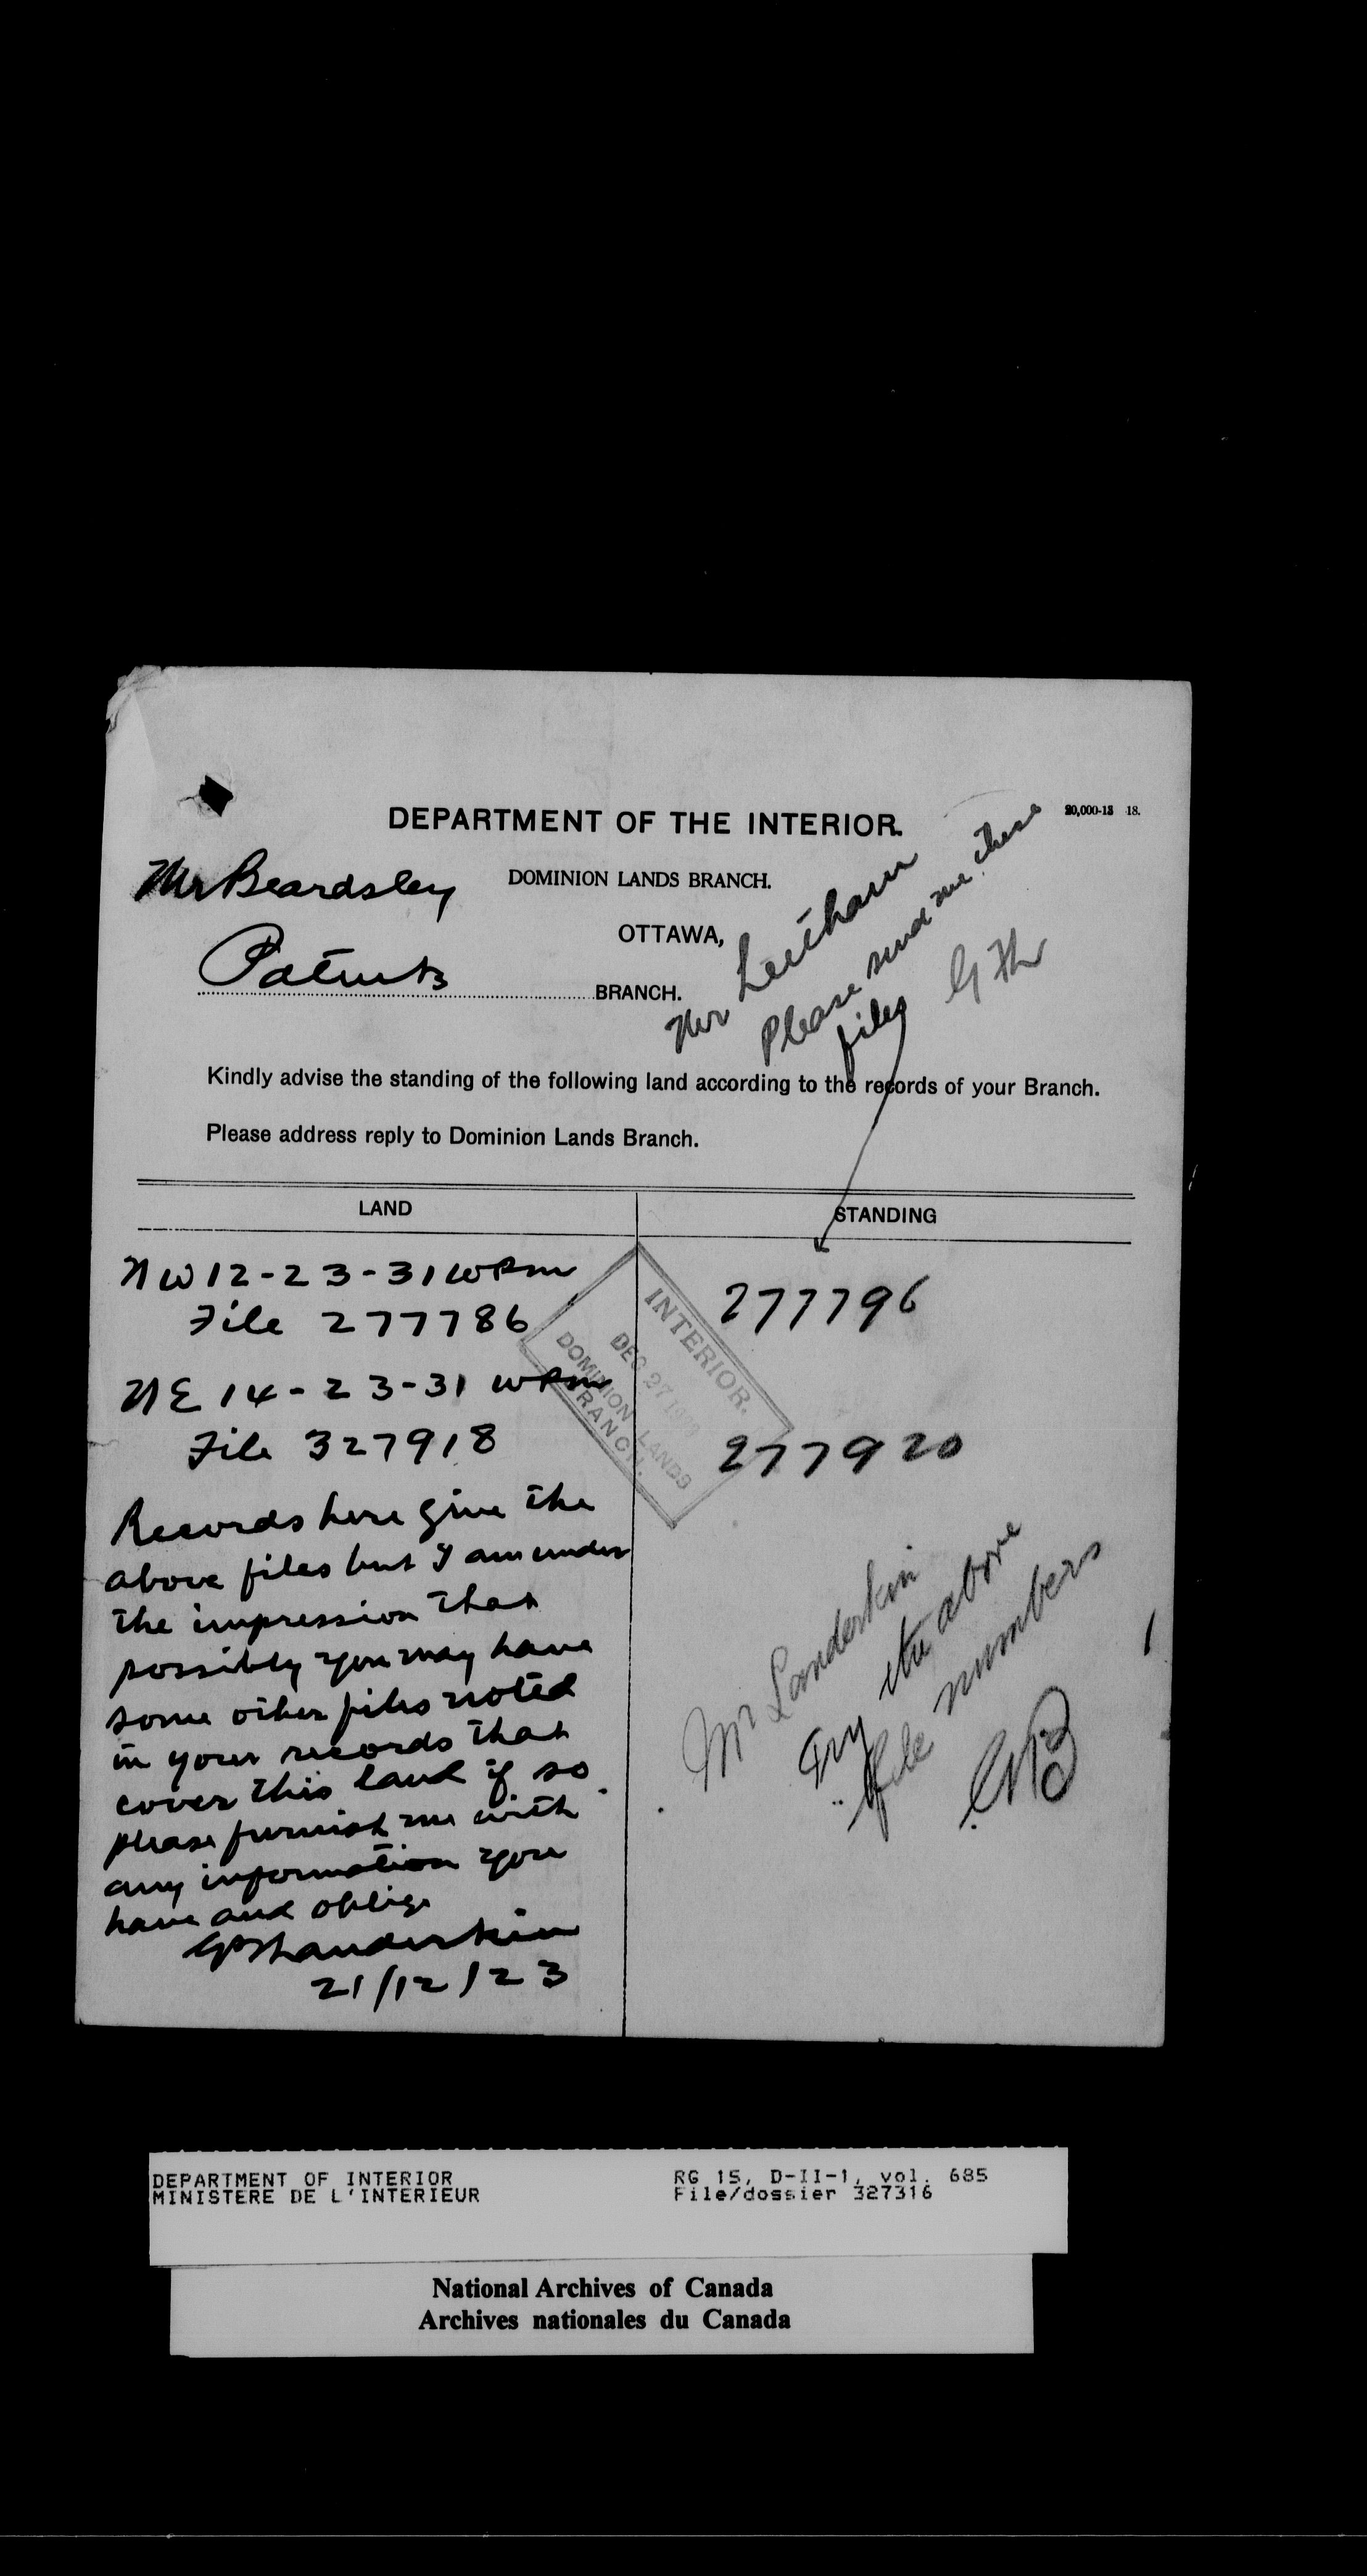 DEPARTMENT OF THE INTERIOR.
20,000-13 18.
Mr Beardsley
DOMINION LANDS BRANCH.
OTTAWA,
Patents BRANCH.
Mr Leetham
Please send me these
files
Kindly advise the standing of the following land according to the records of your Branch.
Please address reply to Dominion Lands Branch.
LAND
STANDING
NW 12-23-31 WPM
File 277786
277796
NE 14-23-31 WPM
File 327918
277920
INTERIOR.
DEC 27
DOMINION LANDS
BRANCH.
Records here give the
above files but I am under
the impression that
possibly you may have
some other files noted
in your records that
cover this land if so
please furnish me with
any information you
have and oblige
Landerkin
21/12/23
Mr Landerkin
Try the above
file numbers
DEPARTMENT OF INTERIOR
MINISTERE DE L'INTERIEUR
RG 15, D-II-1, vol. 685
File/dossier 327316
National Archives of Canada
Archives nationales du Canada